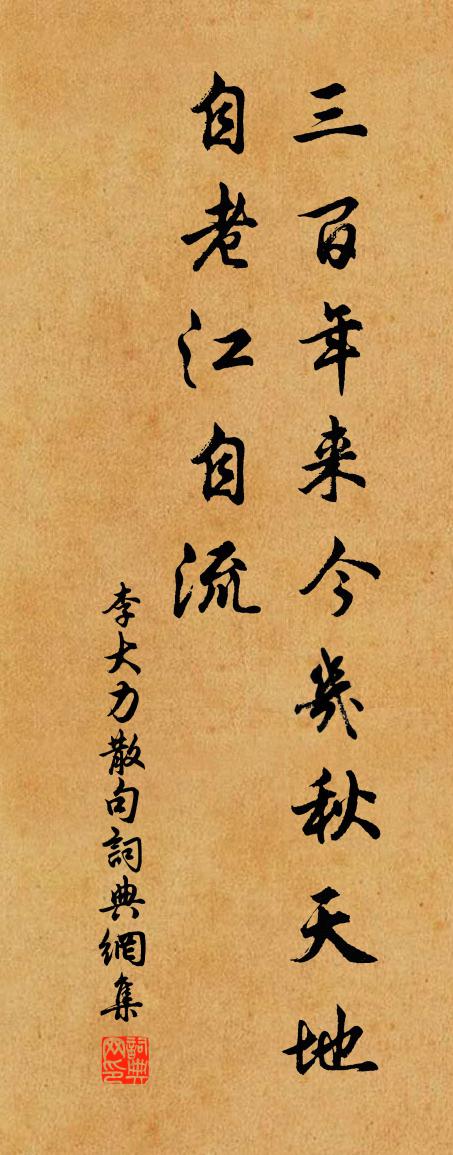 三百年来今幾秋天地
自老江自流
李大力散句詞典網集
詞典网印